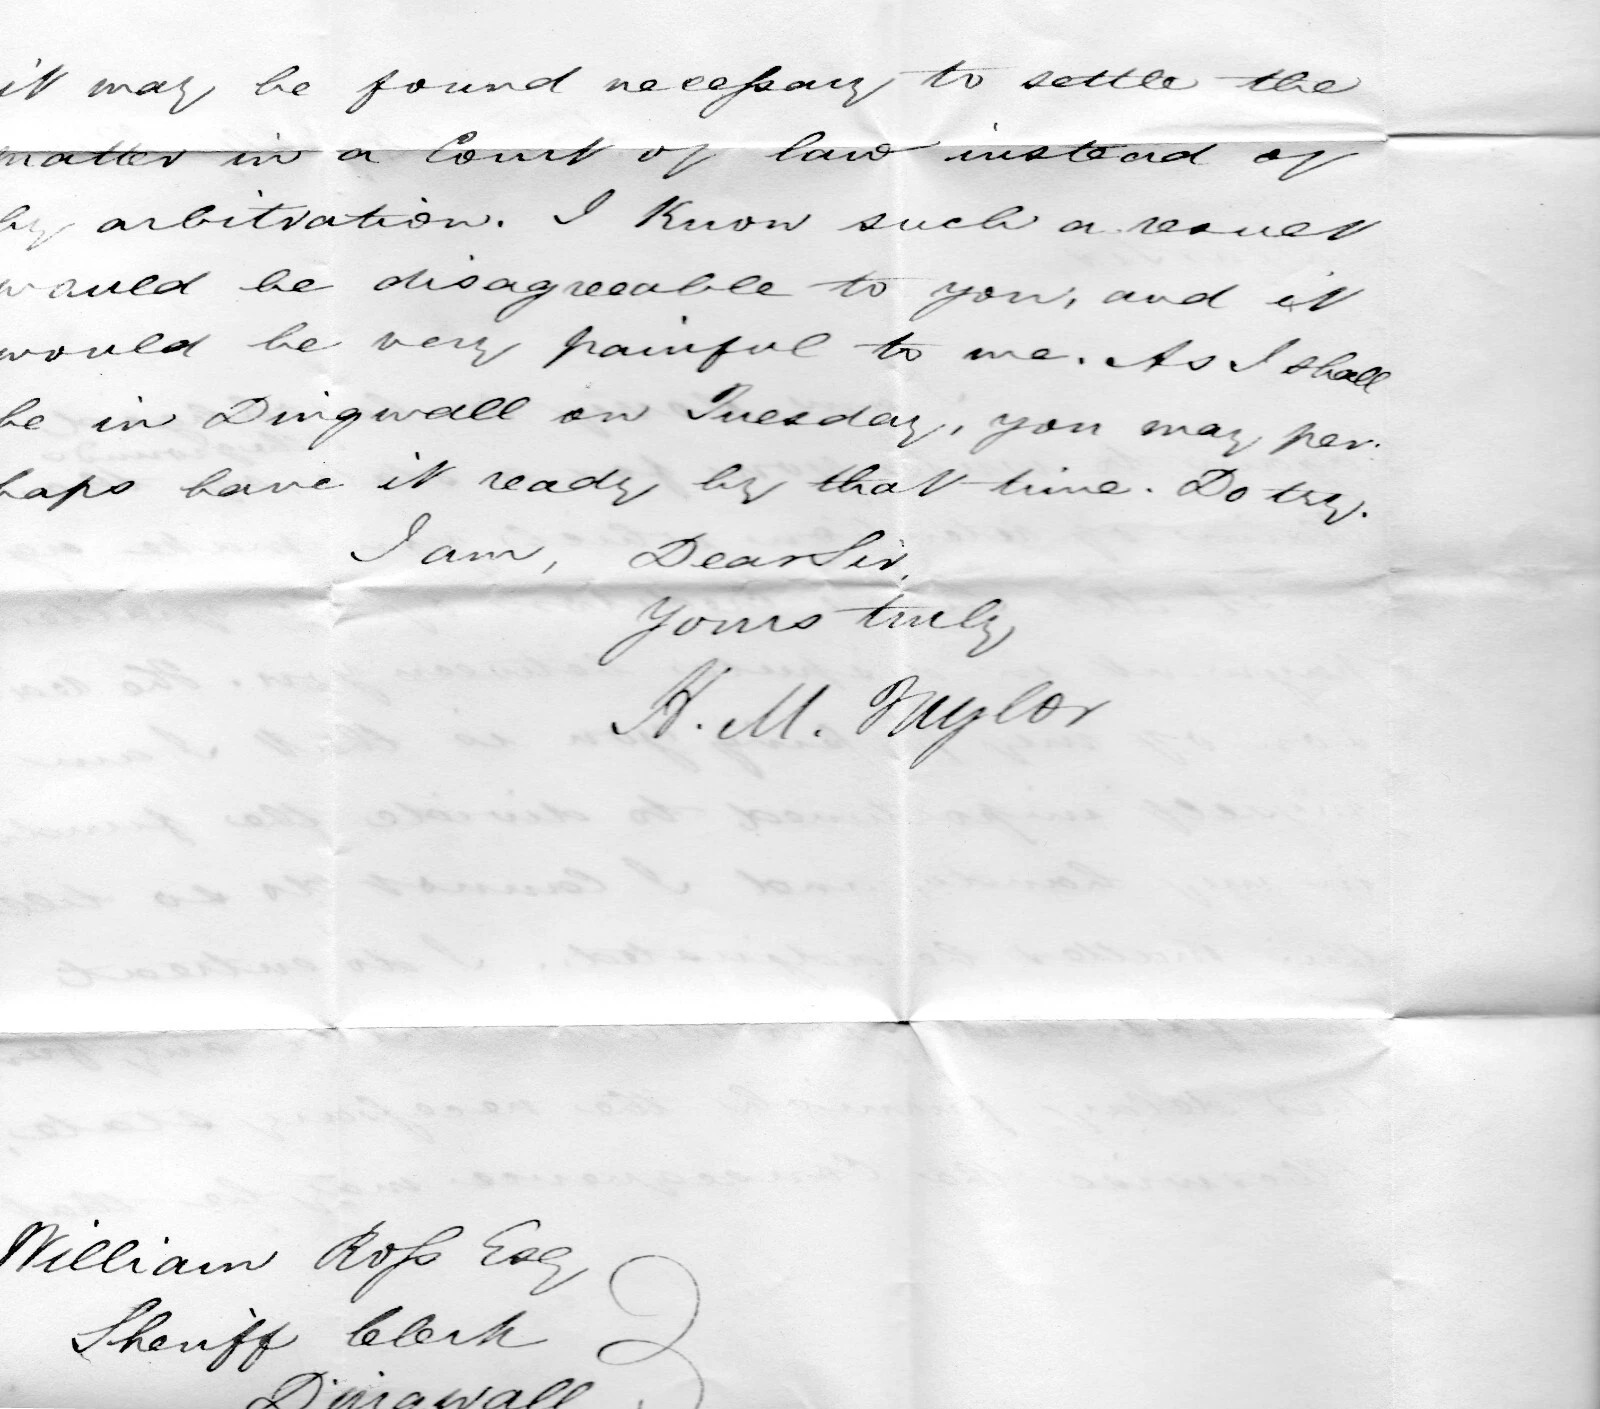 it may be found necessary to settle the
matter in a Court of law instead of
by arbitration. I Know such a result
would be disagreeable to you, and it
would be very painful to me. As I shall
be in Dingwall on Tuesday, you may per-
haps have it ready by that time. Do try.
I am, Dear Sir,
Yours truly
H. M. Taylor
William Ross Esq
Sheriff Clerk
Dingwall